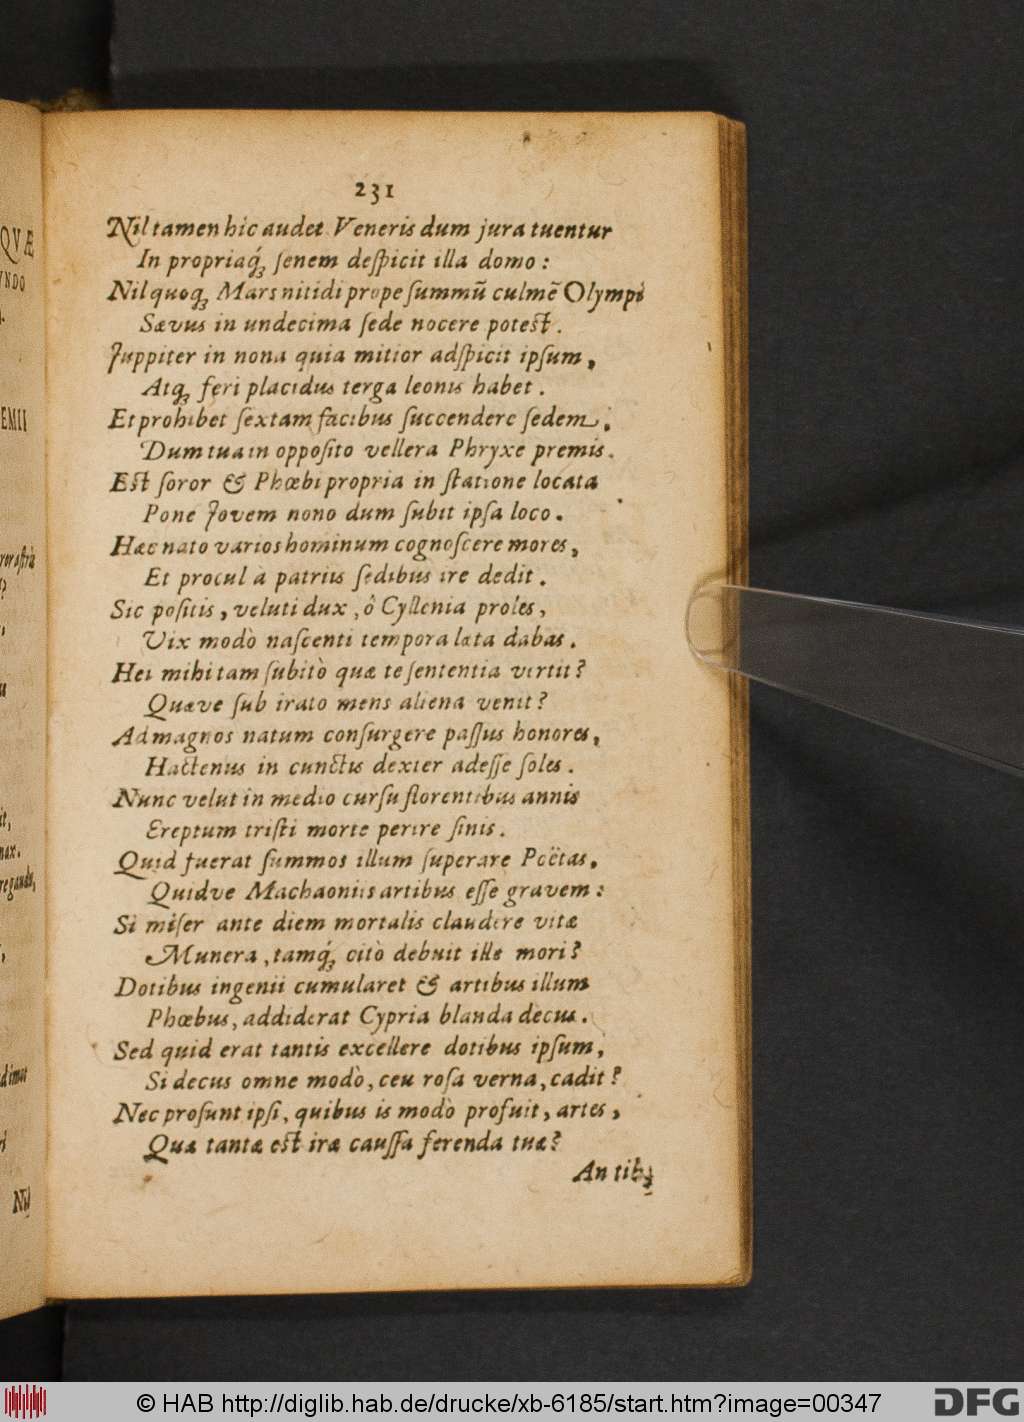 231
Nil tamen hic audet Veneris dum jura tuentur
In propriaq́; ſenem deſpicit illa domo:
Nil quoq; Mars nitidi prope ſummũ culmẽ Olympi
Sævus in undecima ſede nocere poteſt.
Juppiter in nona quia mitior adſpicit ipſum,
Atq; feri placidus terga leonis habet.
Et prohibet ſextam facibus ſuccendere ſedem,
Dum tua in oppoſito vellera Phryxe premis.
Eſt ſoror & Phœbi propria in ſtatione locata
Pone Jovem nono dum ſubit ipſa loco.
Hæc nato varios hominum cognoſcere mores,
Et procul à patriis ſedibus ire dedit.
Sic poſitis, veluti dux, ô Cyllenia proles,
Vix modò naſcenti tempora læta dabas.
Hei mihi tam ſubitò quæ te ſententia vertit?
Quæve ſub irato mens aliena venit?
Ad magnos natum conſurgere paſſus honores,
Hactenus in cunctis dexter adeſſe ſoles.
Nunc velut in medio curſu florentibus annis
Ereptum triſti morte perire ſinis.
Quid fuerat ſummos illum ſuperare Poëtas,
Quidve Machaoniis artibus eſſe gravem:
Si miſer ante diem mortalis claudere vitæ
Munera, tamq́; citò debuit ille mori?
Dotibus ingenii cumularet & artibus illum
Phœbus, addiderat Cypria blanda decus.
Sed quid erat tantis excellere dotibus ipſum,
Si decus omne modò, ceu roſa verna, cadit?
Nec proſunt ipſi, quibus is modò profuit, artes,
Quæ tantæ eſt iræ cauſſa ferenda tuæ?
An tib;
QVÆ
VNDO
EMII
Nil
© HAB http://diglib.hab.de/drucke/xb-6185/start.htm?image=00347
DFG